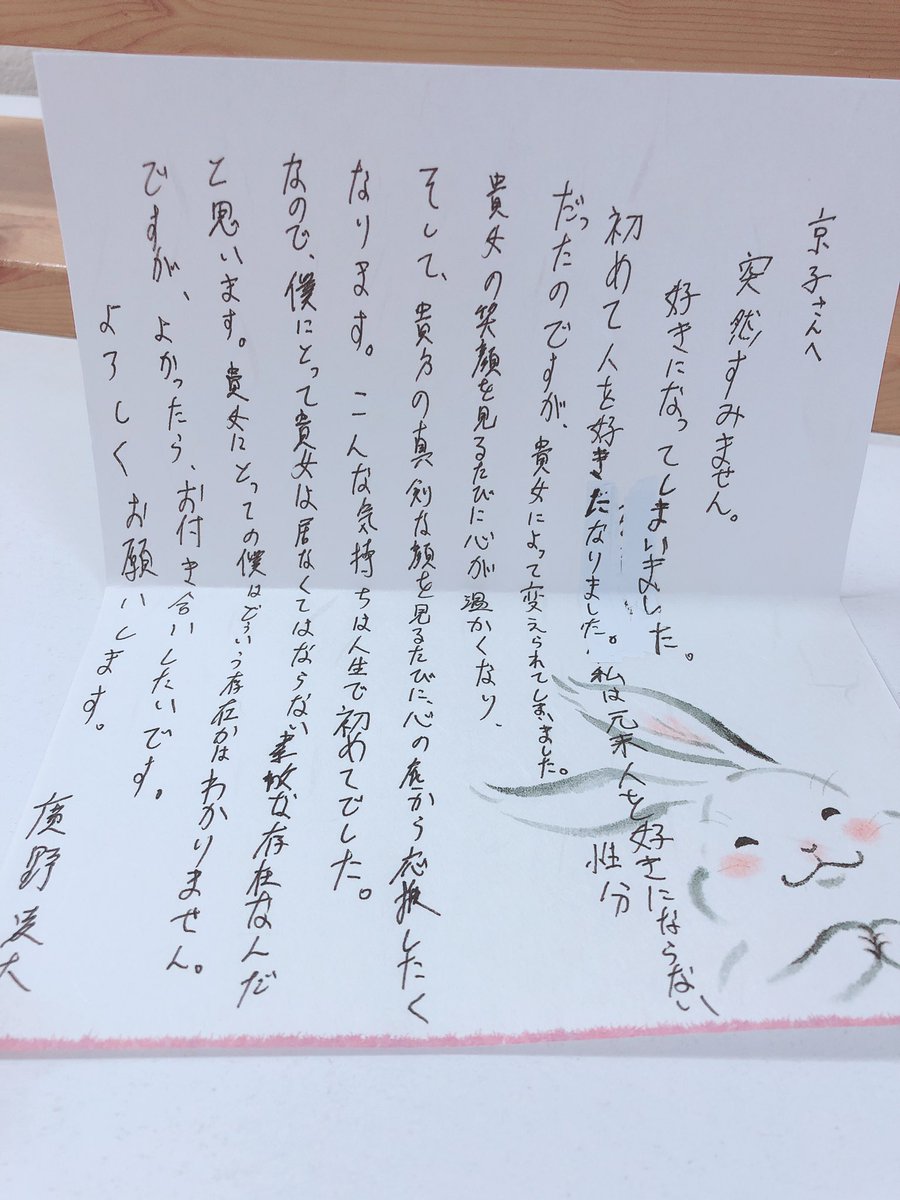 京子さんへ
突然すみません。
好きになってしまいました。
初めて人を好きになりました。私は元来人を好きにならない性分
だったのですが、貴女によって変えられてしまいました。
貴女の笑顔を見るたびに心が温かくなり、
そして、貴方の真剣な顔を見るたびに、心の底から応援したく
なります。こんな気持ちは人生で初めてでした。
なので、僕にとって貴女は居なくてはならない素敵な存在なんだ
と思います。貴女にとっての僕はどういう存在かはわかりません。
ですが、よかったら、お付き合いしたいです。
よろしくお願いします。
廣野凌大